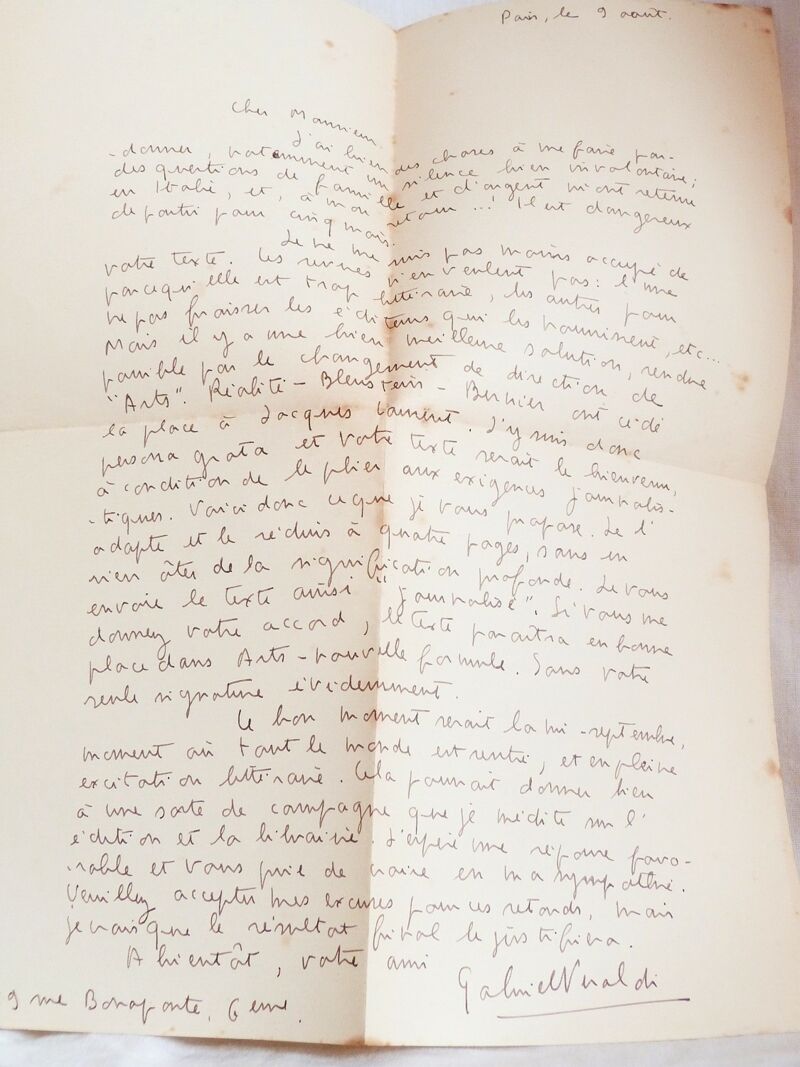 Paris, le 9 août.
Cher Monsieur,
J'ai bien des choses à me faire par-
-donner, notamment un silence bien involontaire;
des questions de famille et d'argent m'ont retenu
en Italie, et, à mon retour ...! Il est dangereux
de partir pour cinq mois.
Je ne me suis pas moins occupé de
votre texte. Les revues n'en veulent pas: l'une
parcequ'elle est trop littéraire, les autres pour
ne pas froisser les éditeurs qui les nourrissent, etc...
Mais il y a une bien meilleure solution, rendue
possible par le changement de direction de
"Arts". Réalité - Bleustein - Bernier ont cédé
la place à Jacques Laurent. J'y suis donc
persona grata et votre texte serait le bienvenu,
à condition de le plier aux exigences journalis-
-tiques. Voici donc ce que je vous propose. Je l'
adapte et le réduis à quatre pages, sans en
rien ôter de la signification profonde. Je vous
envoie le texte ainsi "journalisé". Si vous me
donnez votre accord, le texte paraîtra en bonne
place dans Arts - nouvelle formule. Sous votre
seule signature évidemment.
Le bon moment serait la mi-septembre,
moment où tout le monde est rentré, et en pleine
excitation littéraire. Cela pourrait donner lieu
à une sorte de campagne que je médite sur l'
édition et la librairie. J'espère une réponse favo-
-rable et vous prie de croire en ma sympathie.
Veuillez accepter mes excuses pour ces retards, mais
je crois que le résultat final le justifiera.
A bientôt, votre ami
Gabriel Veraldi
9 rue Bonaparte, 6eme.